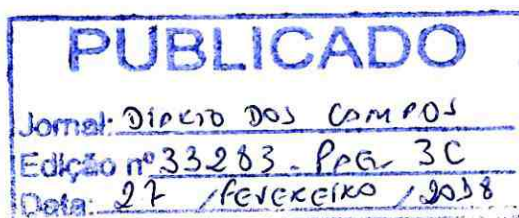 PUBLICADO
Jornal: DIÁRIO DOS CAMPOS
Edição nº 33283 - PAG. 3C
Data: 27 / FEVEREIRO / 2018